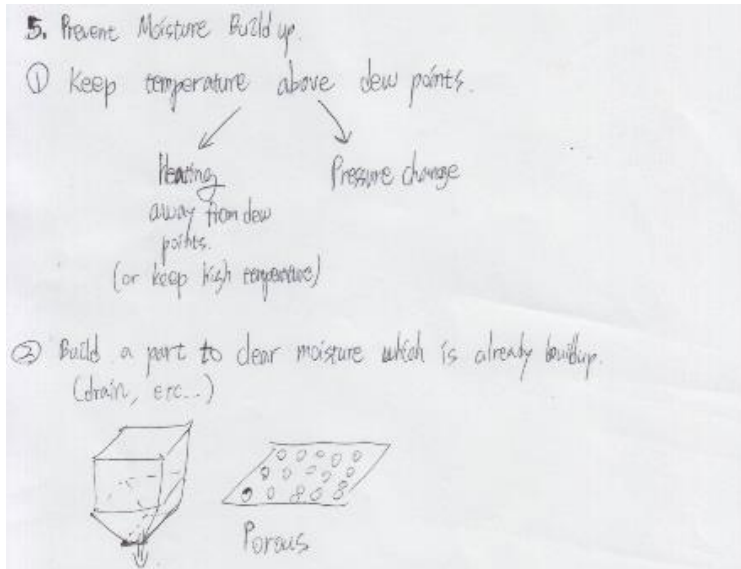 5. Prevent Moisture Build up.
① Keep temperature above dew points.
Heating
away from dew
points.
(or keep high temperature)
Pressure change
② Build a part to clear moisture which is already buildup.
(drain, etc...)
Porous